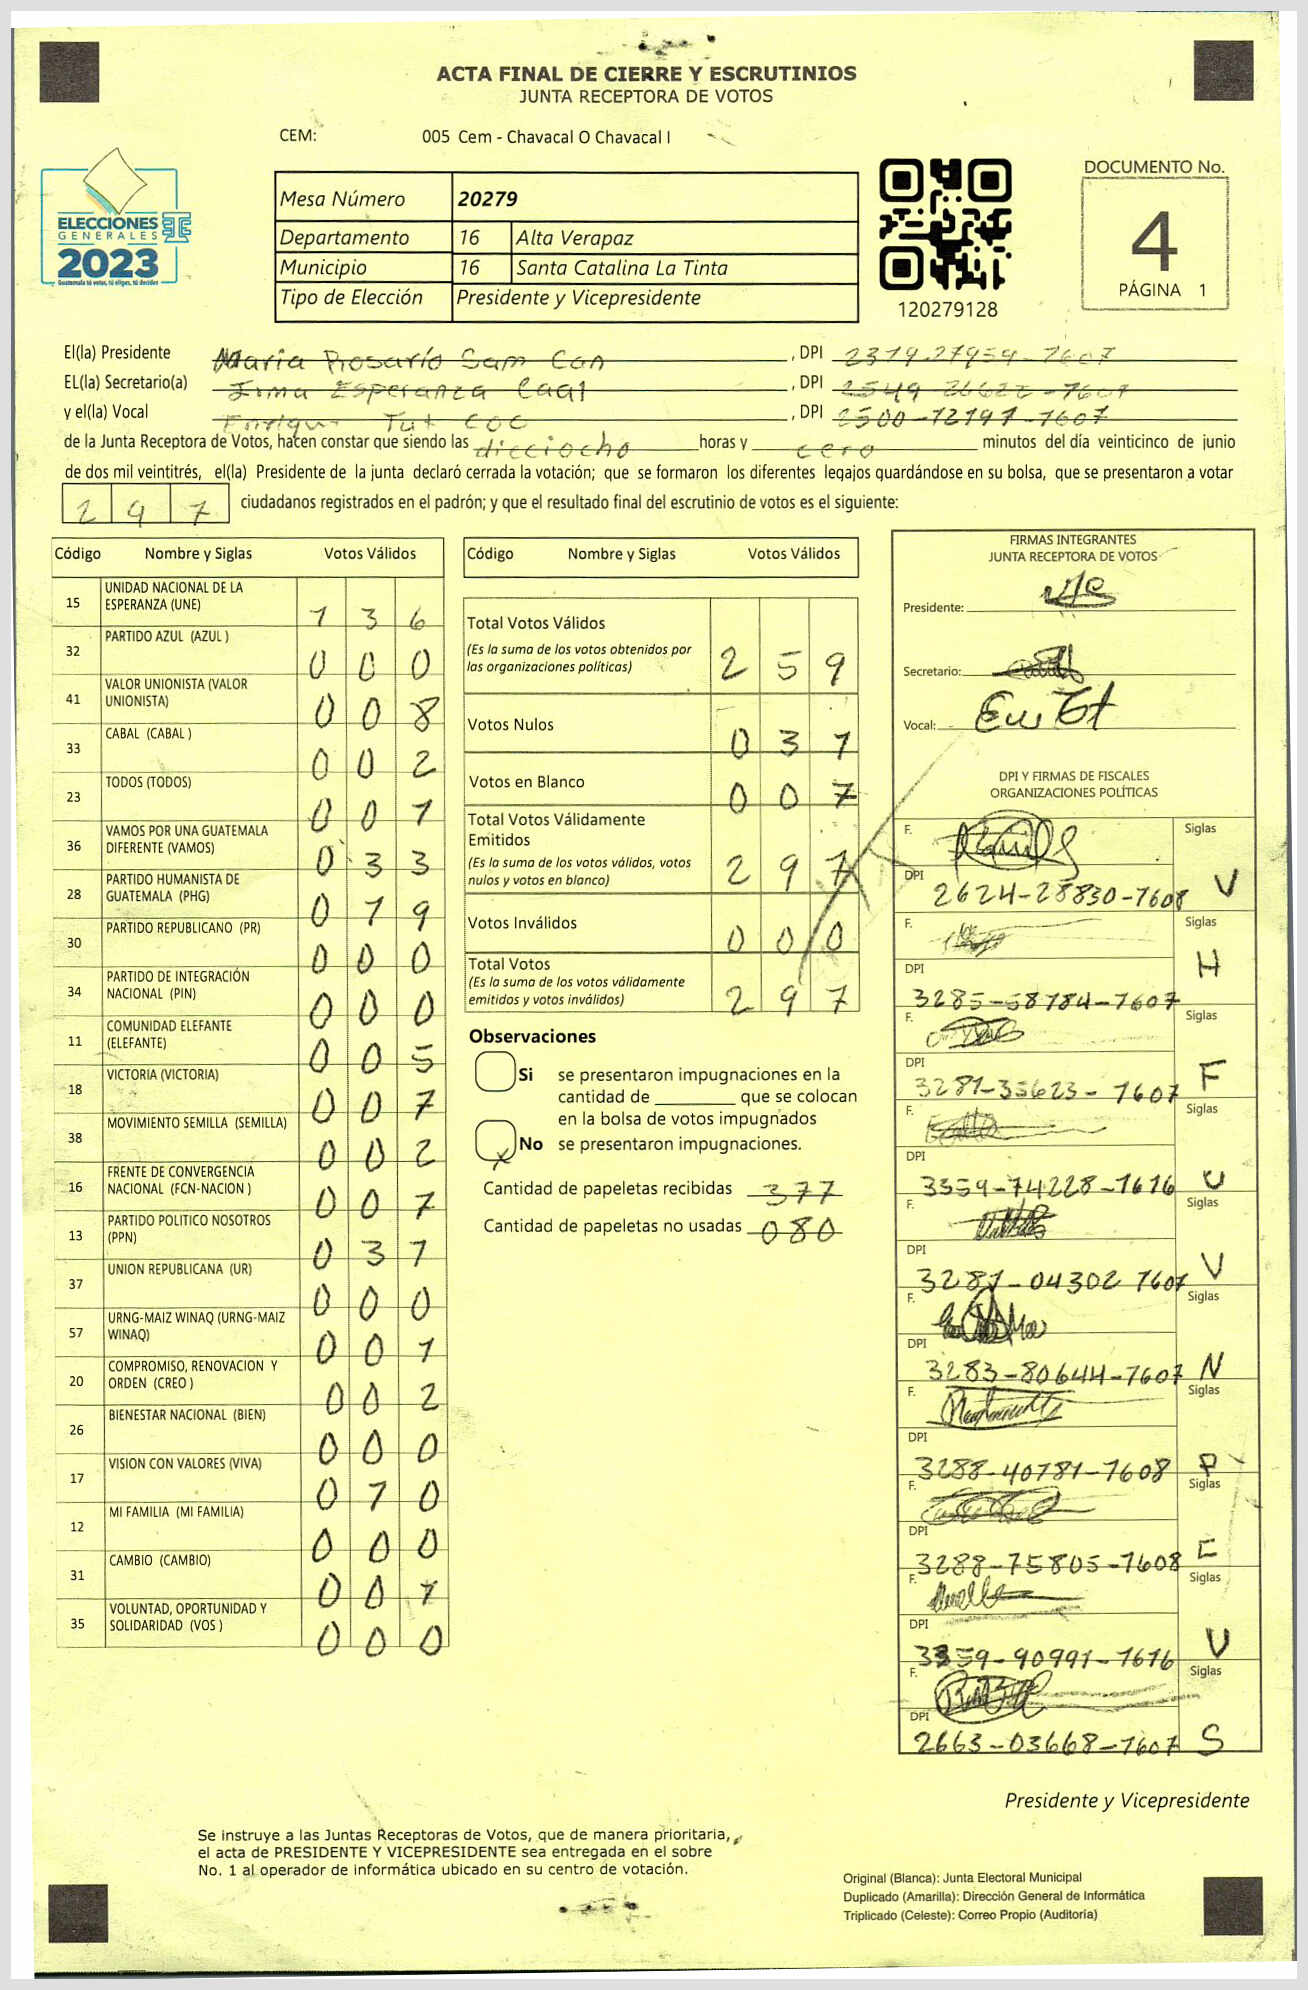 ACTA FINAL DE CIERRE Y ESCRUTINIOS
JUNTA RECEPTORA DE VOTOS
CEM: 005 Cem - Chavacal O Chavacal I
ELECCIONES
GENERALES
2023
Guatemala tú votas, tú eliges, tú decides
Mesa Número 20279
Departamento 16 Alta Verapaz
Municipio 16 Santa Catalina La Tinta
Tipo de Elección Presidente y Vicepresidente
120279128
DOCUMENTO No.
4
PÁGINA 1
El(la) Presidente Maria Rosario Sam Can , DPI 2379-27959-7607
EL(la) Secretario(a) Irma Esperanza Caal , DPI 2549-26622-7607
y el(la) Vocal Enrique Tut COC , DPI 2500-12797-7607
de la Junta Receptora de Votos, hacen constar que siendo las dieciocho horas y cero minutos del día veinticinco de junio
de dos mil veintitrés, el(la) Presidente de la junta declaró cerrada la votación; que se formaron los diferentes legajos guardándose en su bolsa, que se presentaron a votar
297 ciudadanos registrados en el padrón; y que el resultado final del escrutinio de votos es el siguiente:
Código Nombre y Siglas Votos Válidos
15 UNIDAD NACIONAL DE LA ESPERANZA (UNE) 136
32 PARTIDO AZUL (AZUL ) 000
41 VALOR UNIONISTA (VALOR UNIONISTA) 008
33 CABAL (CABAL ) 002
23 TODOS (TODOS) 001
36 VAMOS POR UNA GUATEMALA DIFERENTE (VAMOS) 033
28 PARTIDO HUMANISTA DE GUATEMALA (PHG) 019
30 PARTIDO REPUBLICANO (PR) 000
34 PARTIDO DE INTEGRACIÓN NACIONAL (PIN) 000
11 COMUNIDAD ELEFANTE (ELEFANTE) 005
18 VICTORIA (VICTORIA) 007
38 MOVIMIENTO SEMILLA (SEMILLA) 002
16 FRENTE DE CONVERGENCIA NACIONAL (FCN-NACION ) 001
13 PARTIDO POLITICO NOSOTROS (PPN) 031
37 UNION REPUBLICANA (UR) 000
57 URNG-MAIZ WINAQ (URNG-MAIZ WINAQ) 001
20 COMPROMISO, RENOVACION Y ORDEN (CREO ) 002
26 BIENESTAR NACIONAL (BIEN) 000
17 VISION CON VALORES (VIVA) 010
12 MI FAMILIA (MI FAMILIA) 000
31 CAMBIO (CAMBIO) 001
35 VOLUNTAD, OPORTUNIDAD Y SOLIDARIDAD (VOS ) 000
Código Nombre y Siglas Votos Válidos
Total Votos Válidos 259
(Es la suma de los votos obtenidos por
las organizaciones políticas)
Votos Nulos 031
Votos en Blanco 007
Total Votos Válidamente
Emitidos 297
(Es la suma de los votos válidos, votos
nulos y votos en blanco)
Votos Inválidos 000
Total Votos
(Es la suma de los votos válidamente
emitidos y votos inválidos) 297
Observaciones
Si se presentaron impugnaciones en la
cantidad de ________ que se colocan
en la bolsa de votos impugnados
X No se presentaron impugnaciones.
Cantidad de papeletas recibidas 377
Cantidad de papeletas no usadas 080
FIRMAS INTEGRANTES
JUNTA RECEPTORA DE VOTOS
Presidente:
Secretario:
Vocal:
DPI Y FIRMAS DE FISCALES
ORGANIZACIONES POLÍTICAS
F. Siglas
DPI 2624-28830-1608 V
F. Siglas
DPI 3285-58784-1607 H
F. Siglas
DPI 3281-35623-1607 F
F. Siglas
DPI 3359-74228-1616 U
F. Siglas
DPI 3281-04302 1607 V
F. Siglas
DPI 3283-80644-1607 N
F. Siglas
DPI 3288-40781-1608 P
F. Siglas
DPI 3288-75805-1608 E
F. Siglas
DPI 3359-90991-1616 U
F. Siglas
DPI 2663-03668-1607 S
Presidente y Vicepresidente
Se instruye a las Juntas Receptoras de Votos, que de manera prioritaria,
el acta de PRESIDENTE Y VICEPRESIDENTE sea entregada en el sobre
No. 1 al operador de informática ubicado en su centro de votación.
Original (Blanca): Junta Electoral Municipal
Duplicado (Amarilla): Dirección General de Informática
Triplicado (Celeste): Correo Propio (Auditoría)